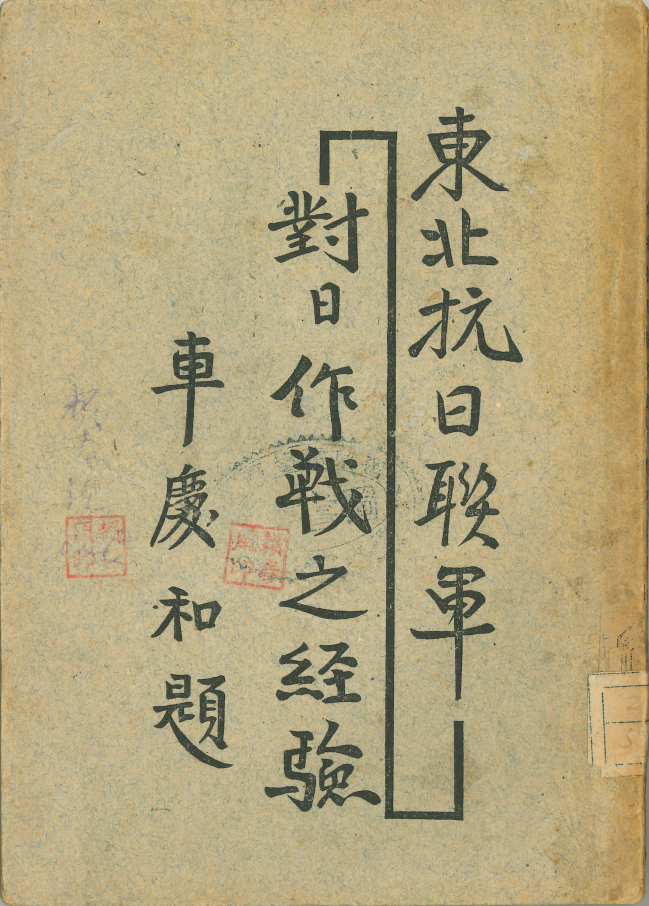 東北抗日聯軍
對日作戦之経験
車慶和題